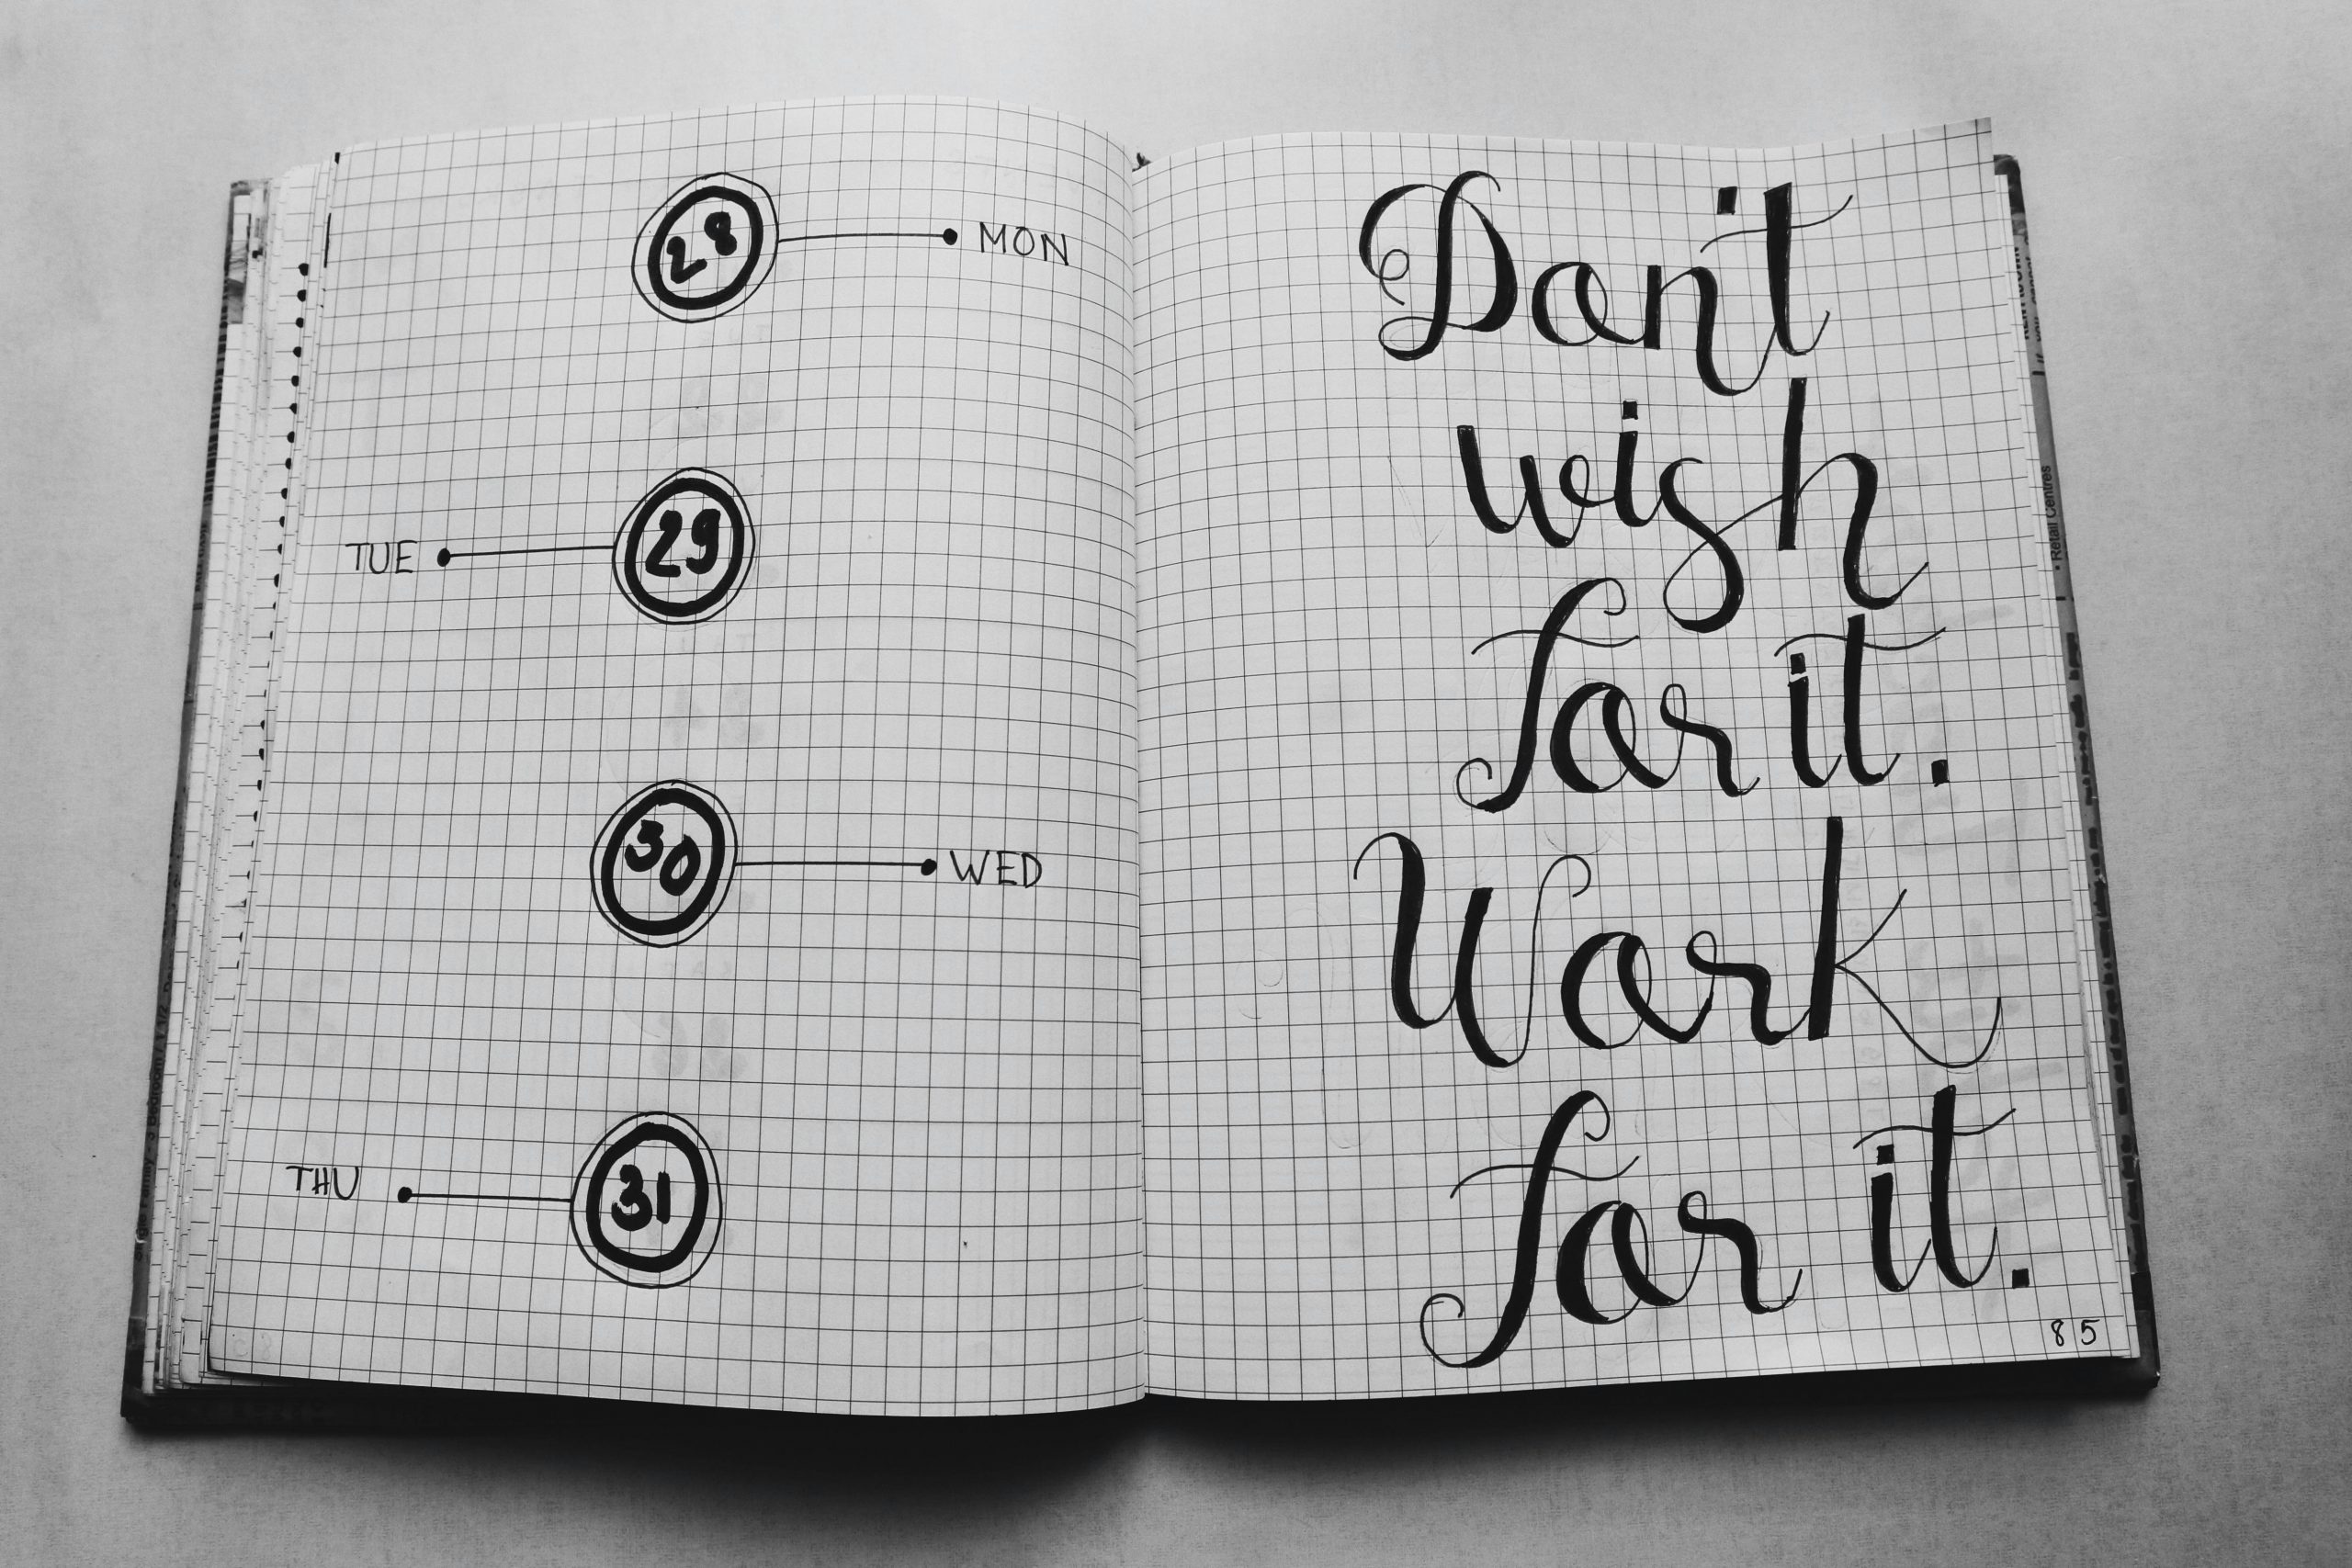 28 MON
TUE 29
30 WED
THU 31
Don't
wish
for it.
Work
for it.
85
Retail Centres